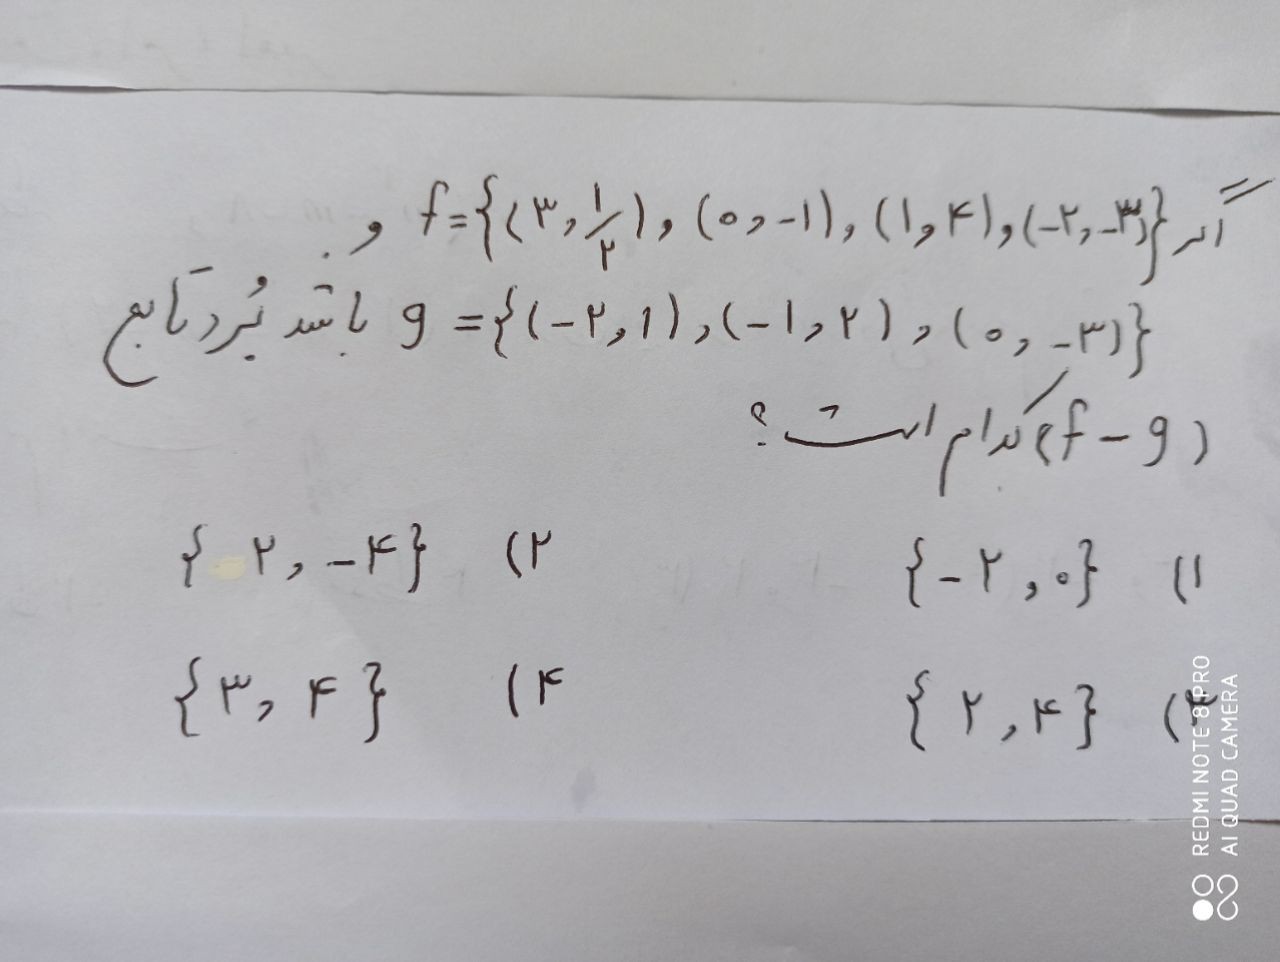 اگر f={(۳,۱/۲),(۰,-۱),(۱,۴),(-۲,-۳)} و
g={(-۲,۱),(-۱,۲),(۰,-۳)} باشد بُرد تابع
(f-g) کدام است؟
۱) {-۲,۰} ۲) {۲,-۴}
۳) {۲,۴} ۴) {۳,۴}
REDMI NOTE 8 PRO
AI QUAD CAMERA